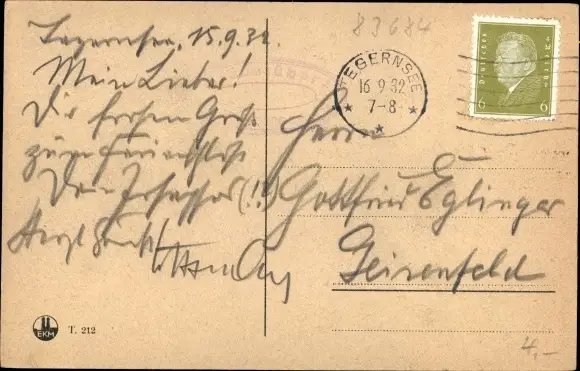 Tegernsee, 15.9.32
Mein Lieber!
Dir frohen Gruß
zum
Dein (!!)
Herzl. Grüße
83684
TEGERNSEE
16 9 32
7-8
DEUTSCHES REICH
6 6
Herrn
Gottfried Eglinger
Geisenfeld
EKM
T. 212
4.-